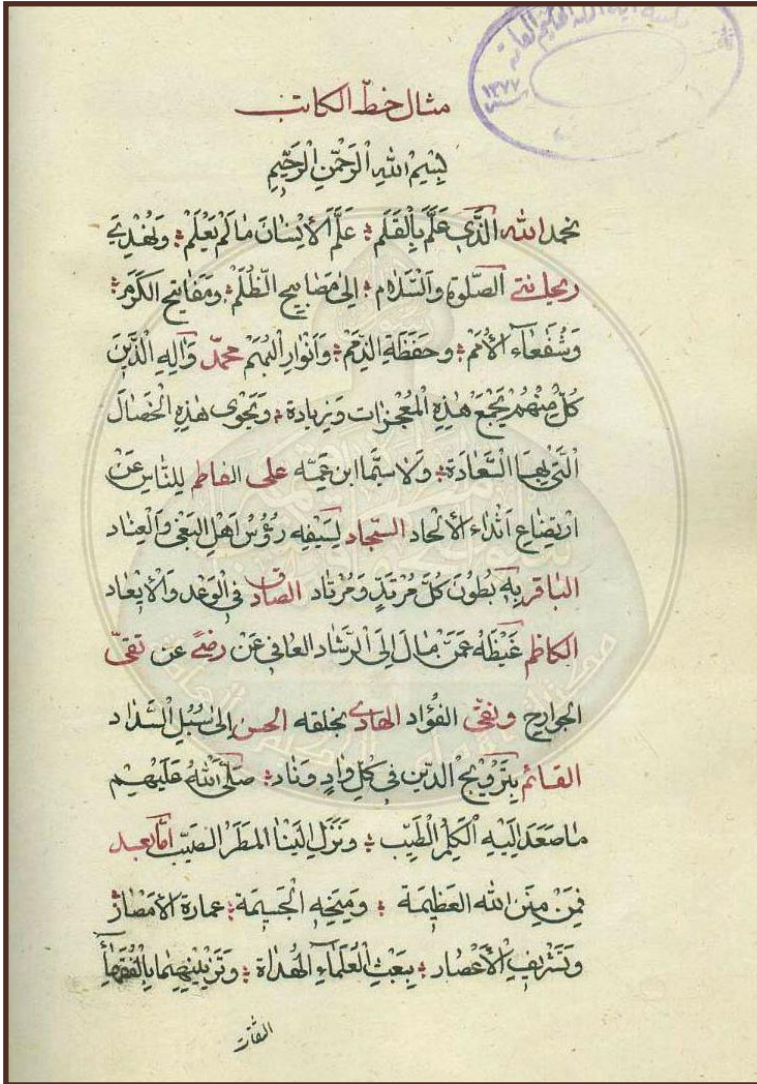 مثال خطّ الكاتب
بِسْمِ اللهِ الرَّحْمٰنِ الرَّحِيْمِ
نحمد الله الَّذي عَلَّمَ بِالْقَلَمِ؛ عَلَّمَ الْاِنْسٰانَ مٰالَمْ يَعْلَمْ؛ وَنُهْدي
الصَّلوة وَالسَّلٰامِ؛ اِلىٰ مَصٰابِيحِ الظُّلَمْ؛ وَمَفٰاتيحِ الكَرَمْ؛
وَشُفَعٰاءِ الْاُمَمْ؛ وحَفَظَةِ الذِّمَمْ؛ وَاَنْوٰارِ البُهَمْ محمّد وَآلِهِ الَّذينَ
كُلٌّ مِنْهُمْ يَجْمَعُ هٰذِهِ الْمُعْجِزٰات وَزِيادة؛ وَيَحْوى هٰذِهِ الْخِصٰالَ
الَّتي بِهَا السَّعٰادَة؛ وَلاٰسيَّما ابن عَمِّه على الفاطم لِلنّٰاسِ عَنْ
ارْتِضٰاعِ اَثْداءِ الْاِلْحٰاد السجّاد لِسَيْفِه رُؤُسُ اَهْلِ البَغْىِ وَالْعِنٰاد
البٰاقر بِهِ بُطُونَ كُلّ مُرْتَدٍّ وَمُرْتٰاد الصّادق في الْوَعْدِ وَالْاِيعٰاد
الكاظم غَيْظَهُ عَمَّنْ مٰالَ اِلَى الرَّشٰاد العٰافى عَنْ رضىً عن تقىّ
الجوارح ونقى الفُؤٰاد الهادي بخلقه الحسن اِلىٰ سُبُلِ السَّدٰاد
القٰائم بِتَرْويجِ الدّين فى كلِّ وٰادٍ وَنٰاد؛ صَلَّى اللهُ عَلَيْهِمْ
مٰاصَعَدَ اِلَيْهِ الْكَلِمُ الطَّيِّب؛ وَنَزَلَ اِلَيْنَا المَطَرُ الصَيِّب امّا بعد
فَمِنْ مِنَنِ اللهِ العَظيمَة؛ وَمِنَحِهِ الْجَسيمَة؛ عمارة الْاَمْصٰار؛
وَتَشْريفُ الْاَعْصٰار؛ بِبَعْثِ الْعُلَمٰاءِ الْهُدٰاة؛ وَتَزْيينِهِمٰا بِالْفُقَهٰاءِ
١٣٧٧